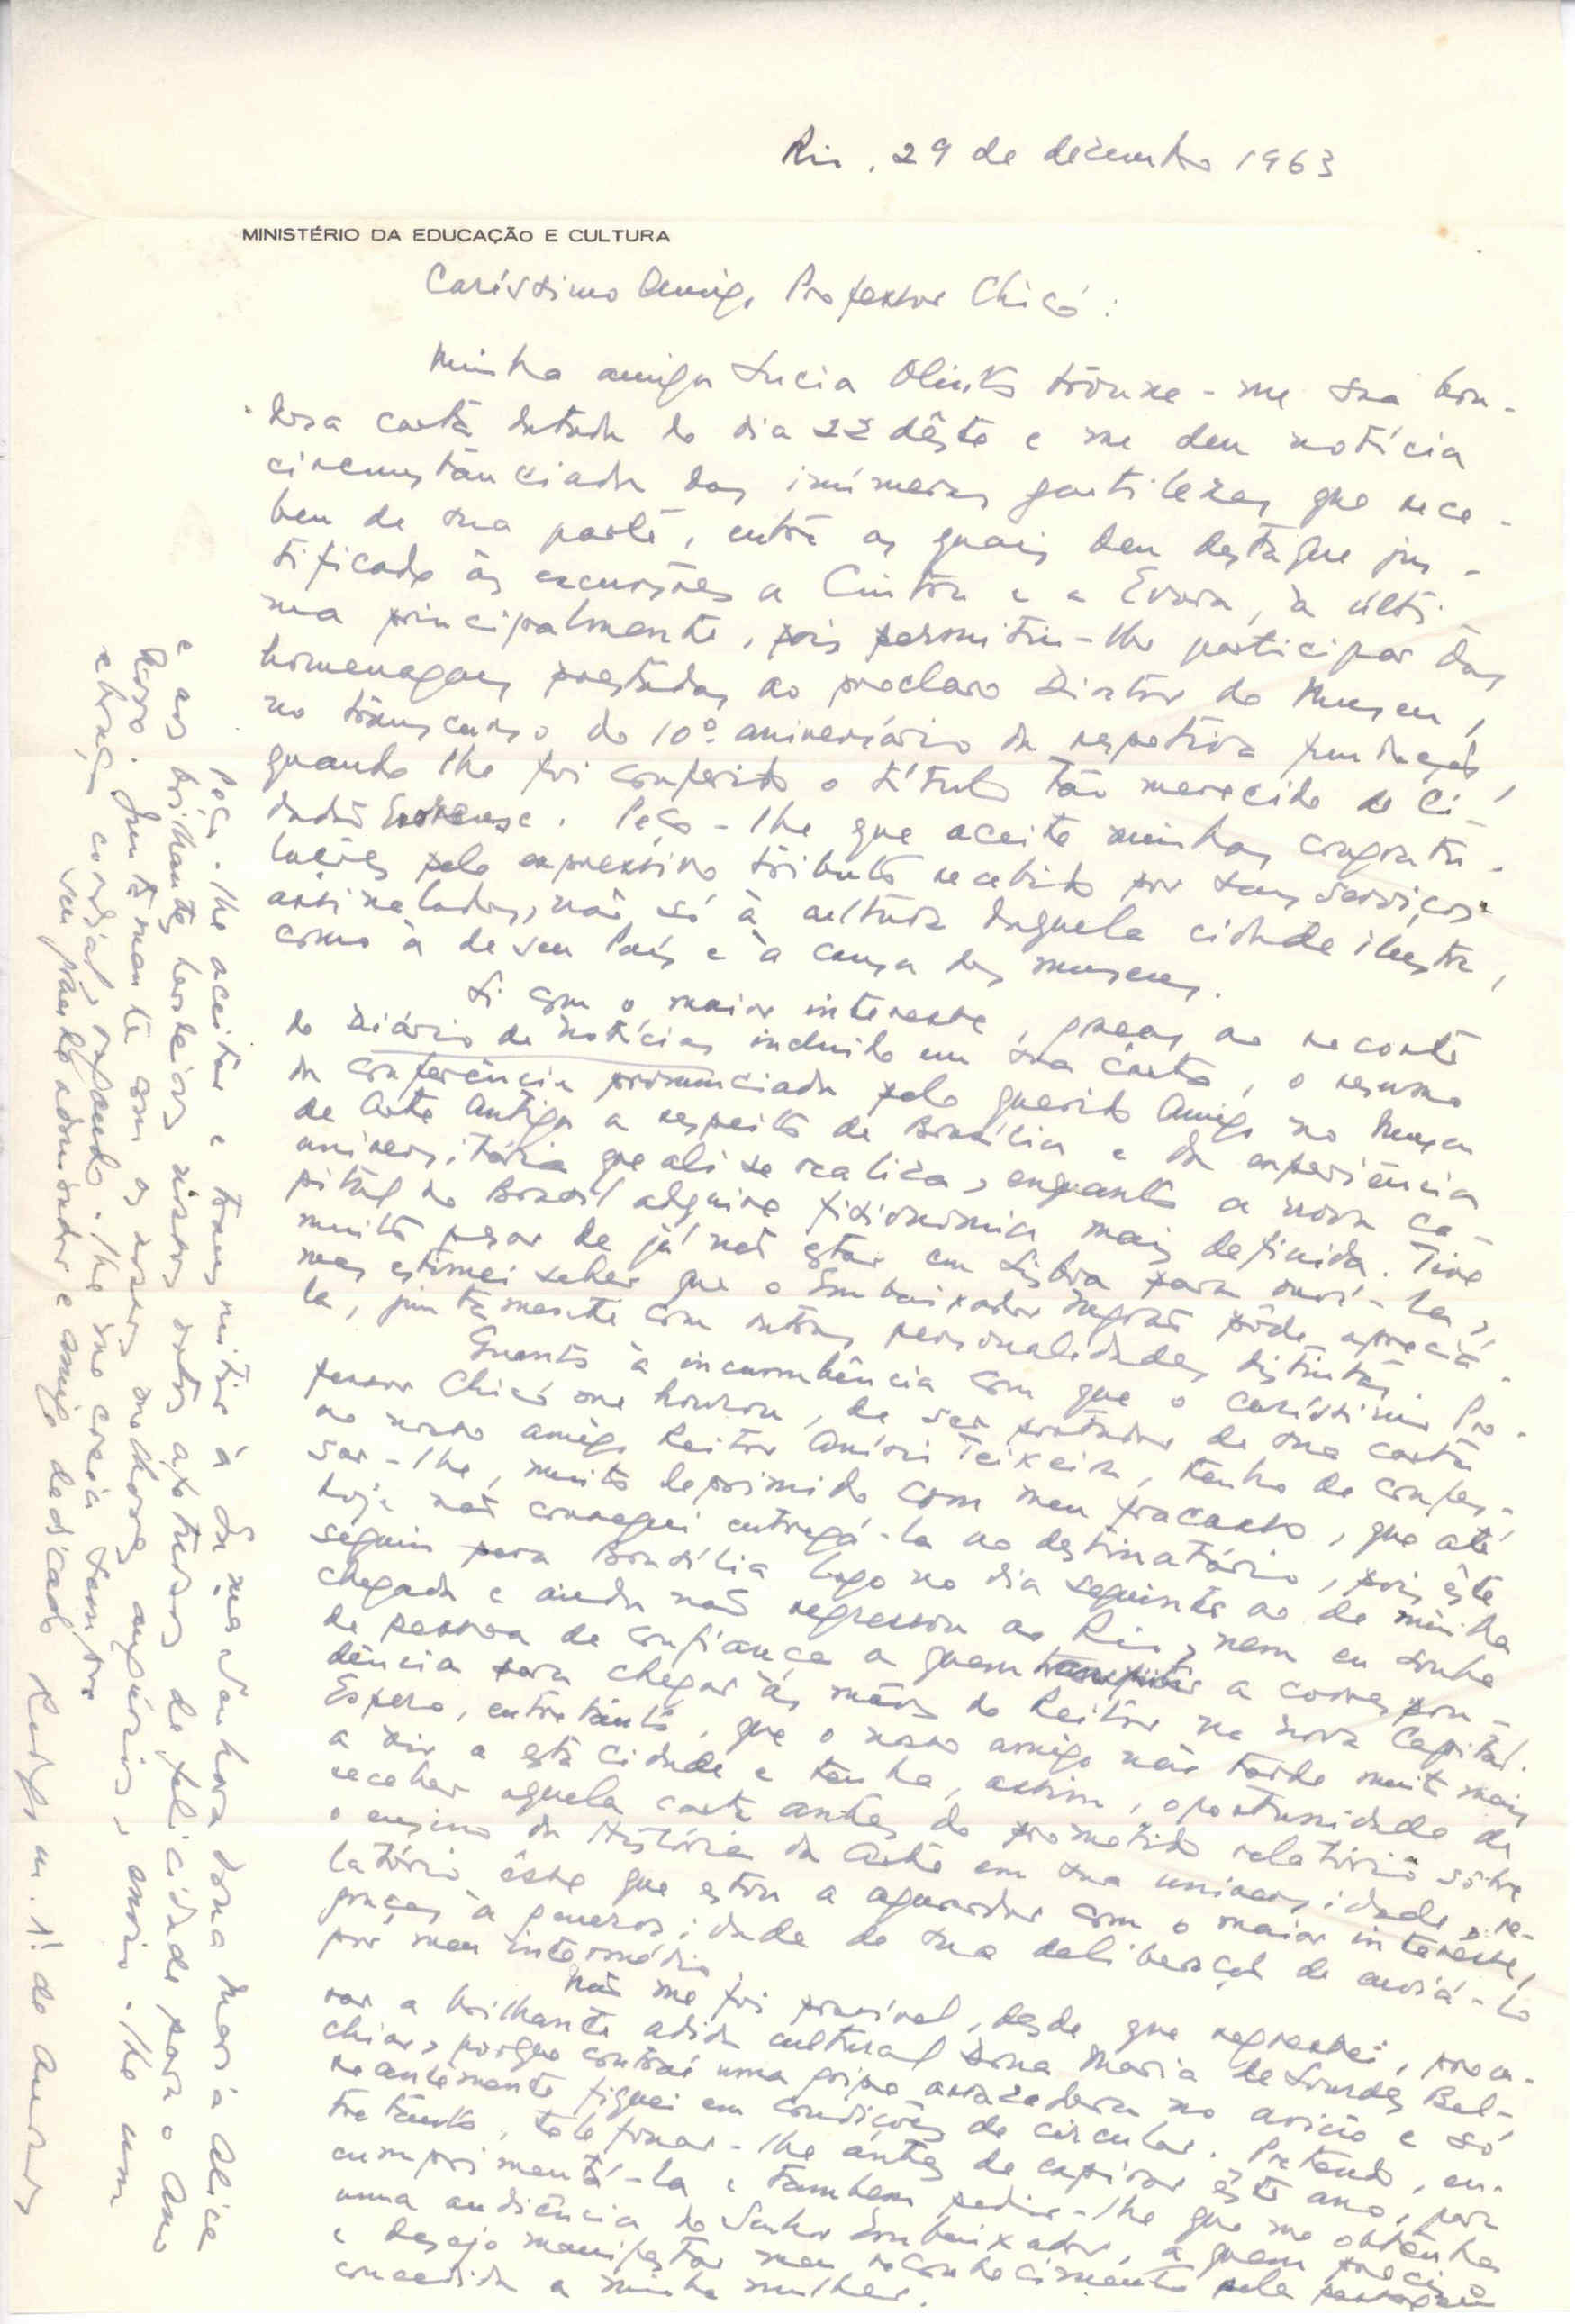 Rio, 29 de dezembro 1963
MINISTÉRIO DA EDUCAÇÃO E CULTURA
Caríssimo Amigo Professor Chicó:
Minha amiga Lucia Olinto trouxe-me sua bon-
dosa carta datada do dia 22 dêste e me deu notícia
circunstânciada das inúmeras gentilezas que rece-
beu de sua parte, entre as quais deu destaque jus-
tificado às excursões a Cintra e a Evora, à últi-
ma principalmente, pois permitiu-lhe participar das
homenagens prestadas ao preclaro Diretor do Museu,
no transcurso do 10º aniversário da respetiva fundação,
quando lhe foi conferido o título tão merecido de Ci-
dadão Eborense. Peço-lhe que aceite minhas congratu-
lações pelo expressivo tributo recebido por seus serviços
assinalados, não só à cultura daquela cidade ilustre,
como à de seu País e à causa dos museus.
Li com o maior interesse, graças ao recorte
do Diário de Notícias incluido em sua carta, o resumo
da conferência pronunciada pelo querido Amigo no Museu
de Arte Antiga a respeito de Brasília e da experiência
universitária que ali se realiza, enquanto a nova ca-
pital do Brasil adquire fisionomia mais definida. Tive
muito pesar de já não estar em Lisboa para ouví-la,
mas estimei saber que o Embaixador Negrão pôde apreciá-
la, juntamente com outras personalidades distintas.
Quanto à incumbência com que o caríssimo Pro-
fessor Chicó me honrou, de ser portador de sua carta
ao nosso amigo Reitor Anísio Teixeira, tenho de confes-
sar-lhe, muito deprimido com meu fracasso, que até
hoje não consegui entregá-la ao destinatário, pois êste
seguiu para Brasília logo no dia seguinte ao de minha
chegada e ainda não regressou ao Rio, nem eu soube
de pessoa de confiança a quem transmitir a correspon-
dência para chegar às mãos do Reitor na nova Capital.
Espero, entretanto, que o nosso amigo não tarde muito mais
a vir a esta cidade e tenha, assim, oportunidade de
receber aquela carta antes do prometido relatório sôbre
o ensino da História da Arte em sua universidade, re-
latório êsse que estou a aguardar com o maior interêsse,
graças à generosidade de sua deliberação de enviá-lo
por meu intermédio.
Não me foi possível, desde que regressei, procu-
rar a brilhante adida cultural Dona Maria de Lourdes Bel-
chior, porque contraí uma gripe arrazadora no avião e só
recentemente fiquei em condições de circular. Pretendo, en-
tretanto, telefonar-lhe antes de expirar êste ano, para
cumprimentá-la e tambem pedir-lhe que me obtenha
uma audiência do Senhor Embaixador, a quem preciso
e desejo manifestar meu reconhecimento pela passagem
concedida a minha mulher.
Peço-lhe aceitar e transmitir à Sua Senhora dona Maria Alice
e aos brilhantes herdeiros nossos votos afetuosos de felicidade para o Ano
Novo. Juntamente com os nossos melhores augúrios, envio-lhe um
abraço cordial, pedindo-lhe me creia sempre
seu grande admirador e amigo dedicado Rodrigo M. F. de Andrade